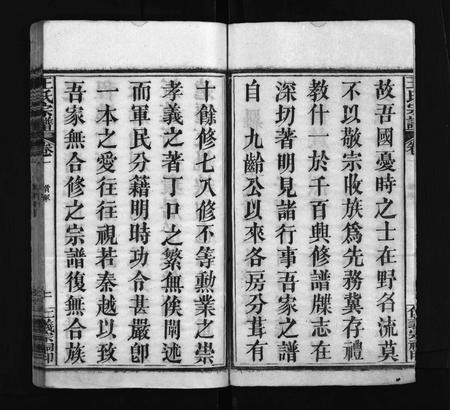 故吾國憂時之士在野名流莫
不以敬宗收族為先務冀存禮
教什一於千百興修譜牒志在
深切著明見諸行事吾家之譜
自 九齡公以來各房分葺有
十餘修七八修不等勳業之崇
孝義之著丁口之繁無俟闡述
而軍民分籍明時功令甚嚴卽
一本之愛往往視若秦越以致
吾家無合修之宗譜復無合族
王氏宗譜
卷